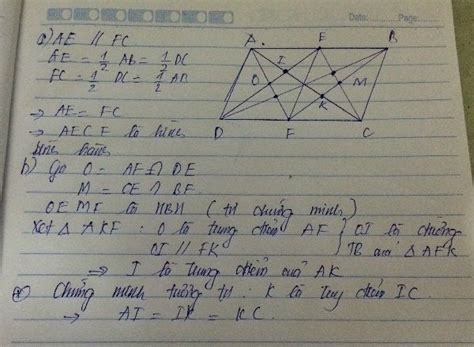 Date: Page:
a) AE // FC
AE = 1/2 AB = 1/2 DC
FC = 1/2 DC = 1/2 AB
→ AE = FC
→ AECF là hình
bình hành
A E B
I
O M
K
D F C
b) Gọi O = AF ∩ DE
M = CE ∩ BF
OEMF là HBH (tự chứng minh)
Xét △ AKF : O là trung điểm AF } OI là đường
OI // FK TB của △ AFK
⇒ I là trung điểm của AK
Chứng minh tương tự : K là trung điểm IC.
→ AI = IK = KC.